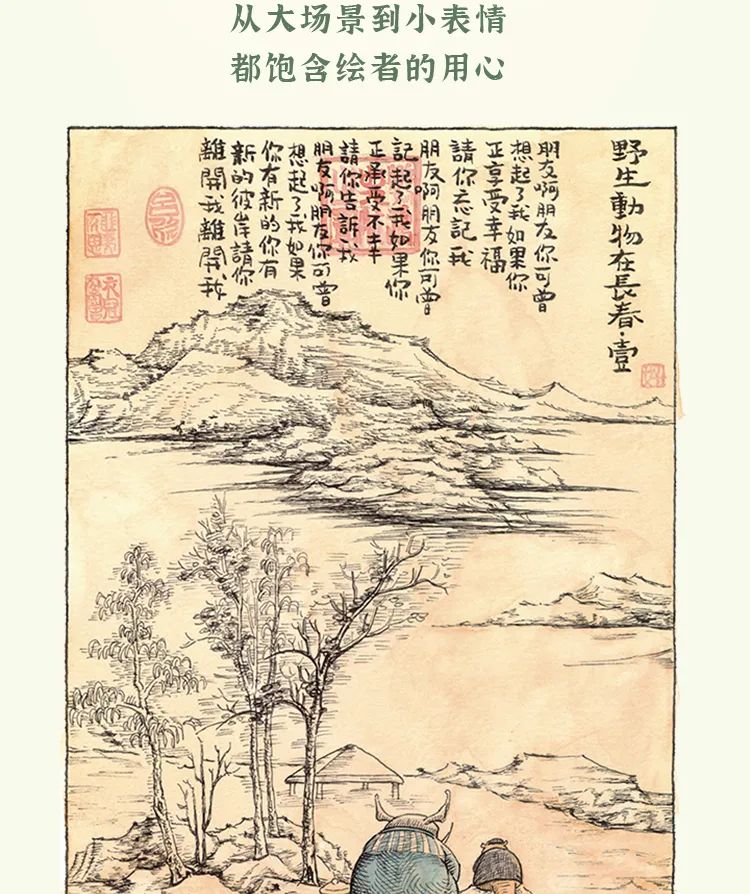 从大场景到小表情
都饱含绘者的用心
野生動物在長春·壹
朋友啊朋友你可曾
想起了我如果你
正享受幸福
請你忘記我
朋友啊朋友你可曾
記起了我如果你
正承受不幸
請你告訴我
朋友啊朋友你可曾
想起了我如果
你有新的你有
新的彼岸請你
離開我離開我